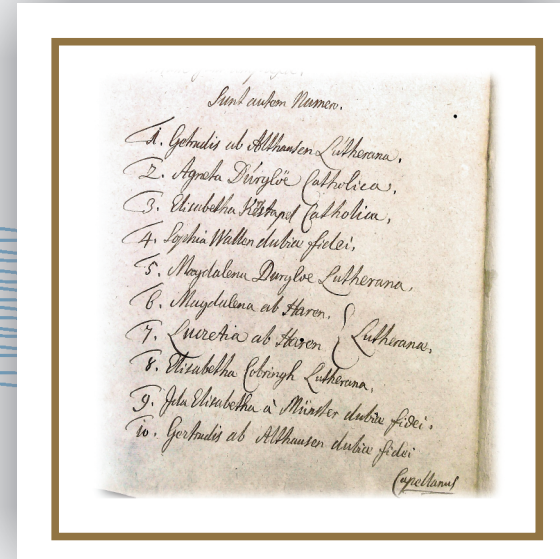 Sunt autem Numero.
1. Getrudis ab Althausen Lutherana.
2. Agneta Düryloë Catholica.
3. Elisabetha Catholica,
4. Sophia Wallen dubiæ fidei,
5. Magdalena Duryloe Lutherana,
6. Magdalena ab Haren.
7. Lucretia ab Haren } Lutheranæ,
8. Elisabetha Cobringh Lutherana,
9. Ida Elisabetha à Münster dubiæ fidei.
10. Gertrudis ab Althausen dubiæ fidei
Capellanus